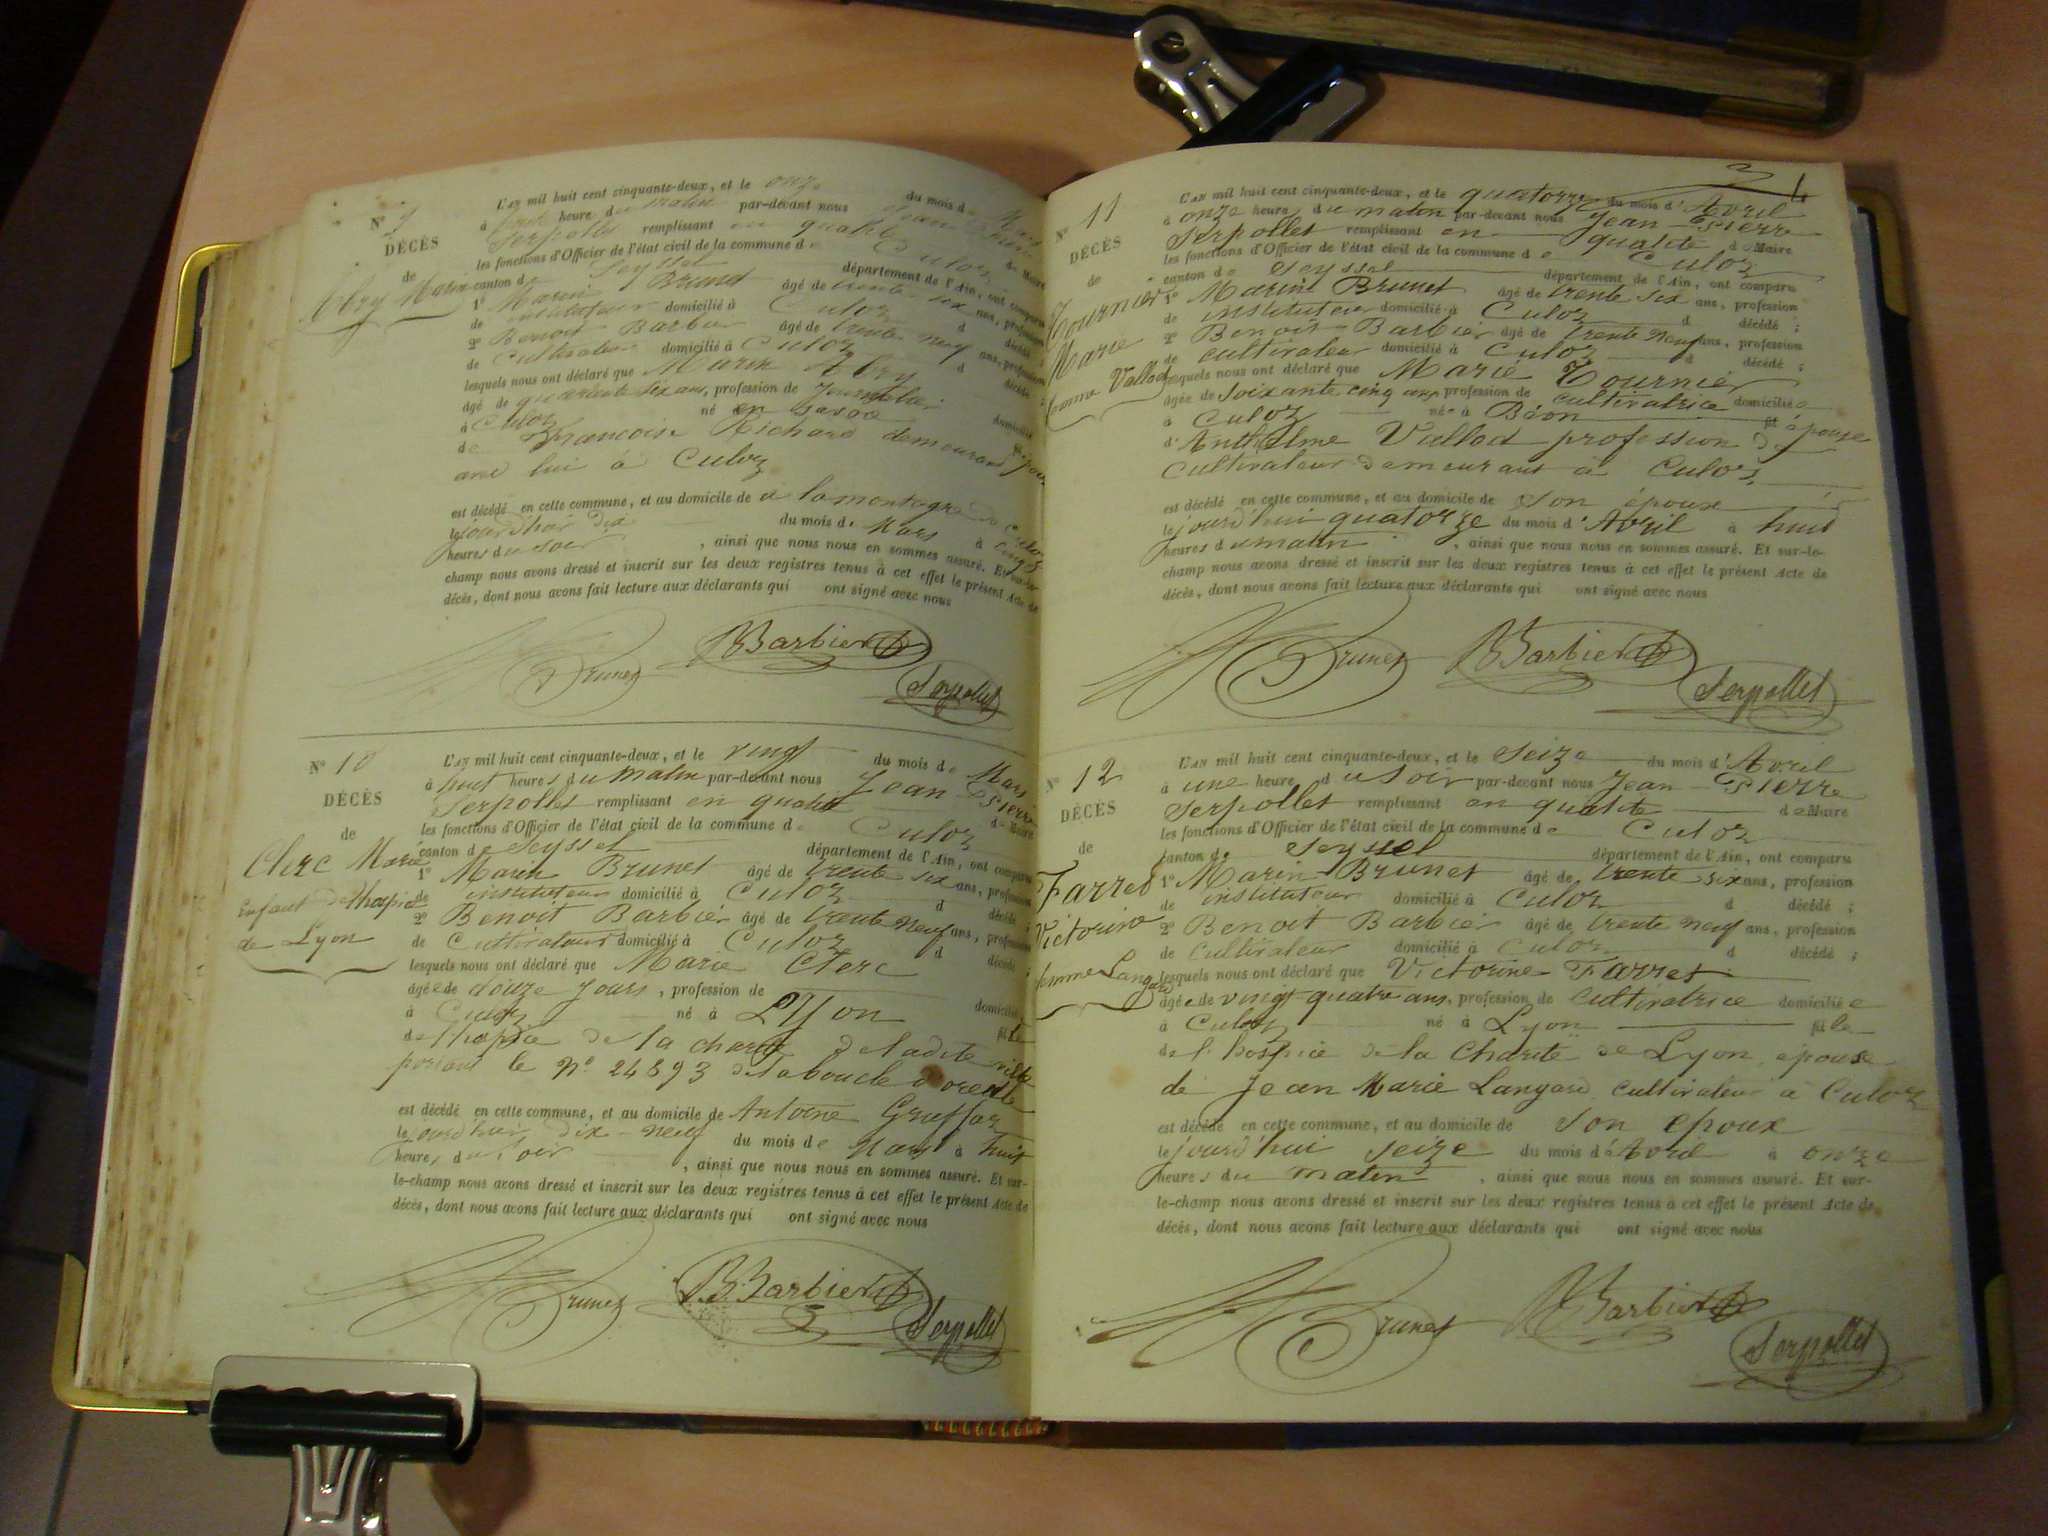 N° 9
DÉCÈS
de
Abry Marin
L'AN mil huit cent cinquante-deux, et le onze du mois de Mars
à heure du matin par-devant nous Jean Pierre
Serpollet remplissant en qualité de Maire
les fonctions d'Officier de l'état civil de la commune de Culoz
canton de Seyssel département de l'Ain, ont comparu
1° Marin Brunet âgé de trente six ans, profession
de instituteur domicilié à Culoz d décédé ;
2° Benoit Barbier âgé de trente neuf ans, profession
de Cultivateur domicilié à Culoz d décédé ;
lesquels nous ont déclaré que Marin Abry
âgé de quarante six ans, profession de Journalier domicilié
à Culoz né en
de Françoise Richard demeurant
avec lui à Culoz
est décédé en cette commune, et au domicile de à la montagne de Culoz
le jourd'hier dix du mois de Mars à cinq
heures du soir , ainsi que nous nous en sommes assuré. Et sur-le-
champ nous avons dressé et inscrit sur les deux registres tenus à cet effet le présent Acte de
décès, dont nous avons fait lecture aux déclarants qui ont signé avec nous
Brunet BBarbier Serpollet
N° 10
DÉCÈS
de
Clerc Marie
Enfant de l'hospice
de Lyon
L'AN mil huit cent cinquante-deux, et le vingt du mois de Mars
à huit heures du matin par-devant nous Jean Pierre
Serpollet remplissant en qualité de Maire
les fonctions d'Officier de l'état civil de la commune de Culoz
canton de Seyssel département de l'Ain, ont comparu
1° Marin Brunet âgé de trente six ans, profession
de instituteur domicilié à Culoz d décédé ;
2° Benoit Barbier âgé de trente neuf ans, profession
de Cultivateur domicilié à Culoz d décédé ;
lesquels nous ont déclaré que Marie Clerc
âgée de douze jours , profession de domicilié
à Culoz né à Lyon fille
de l'hospice de la charité de ladite ville
portant le n° 24893 de la boucle d'oreille
est décédé en cette commune, et au domicile de Antoine Gruffaz
le jourd'hier dix-neuf du mois de Mars à huit
heures du soir , ainsi que nous nous en sommes assuré. Et sur-
le-champ nous avons dressé et inscrit sur les deux registres tenus à cet effet le présent Acte de
décès, dont nous avons fait lecture aux déclarants qui ont signé avec nous
Brunet B.Barbier Serpollet
N° 11
DÉCÈS
de
Tournier
Marie
femme Vallod
L'AN mil huit cent cinquante-deux, et le quatorze du mois d'Avril
à onze heure du matin par-devant nous Jean-Pierre
Serpollet remplissant en qualité de Maire
les fonctions d'Officier de l'état civil de la commune de Culoz
canton de Seyssel département de l'Ain, ont comparu
1° Marin Brunet âgé de trente six ans, profession
de instituteur domicilié à Culoz d décédé ;
2° Benoit Barbier âgé de trente neuf ans, profession
de cultivateur domicilié à Culoz d décédé ;
lesquels nous ont déclaré que Marie Tournier
âgée de soixante cinq ans, profession de cultivatrice domiciliée
à Culoz née à Béon épouse
d'Anthelme Vallod profession de
cultivateur demeurant à Culoz,
est décédé en cette commune, et au domicile de son époux
le jourd'hui quatorze du mois d'Avril à huit
heures du matin , ainsi que nous nous en sommes assuré. Et sur-le-
champ nous avons dressé et inscrit sur les deux registres tenus à cet effet le présent Acte de
décès, dont nous avons fait lecture aux déclarants qui ont signé avec nous
Brunet BBarbier Serpollet
N° 12
DÉCÈS
de
Farret
Victorine
femme Langard
L'AN mil huit cent cinquante-deux, et le seize du mois d'Avril
à une heure du soir par-devant nous Jean-Pierre
Serpollet remplissant en qualité de Maire
les fonctions d'Officier de l'état civil de la commune de Culoz
canton de Seyssel département de l'Ain, ont comparu
1° Marin Brunet âgé de trente six ans, profession
de instituteur domicilié à Culoz d décédé ;
2° Benoit Barbier âgé de trente neuf ans, profession
de Cultivateur domicilié à Culoz d décédé ;
lesquels nous ont déclaré que Victorine Farret
âgée de vingt-quatre ans, profession de Cultivatrice domiciliée
à Culoz né à Lyon fille
de l'hospice de la Charité de Lyon, épouse
de Jean Marie Langard cultivateur à Culoz
est décédé en cette commune, et au domicile de son époux
le jourd'hui seize du mois d'Avril à onze
heures du matin , ainsi que nous nous en sommes assuré. Et sur-
le-champ nous avons dressé et inscrit sur les deux registres tenus à cet effet le présent Acte de
décès, dont nous avons fait lecture aux déclarants qui ont signé avec nous
Brunet BBarbier Serpollet